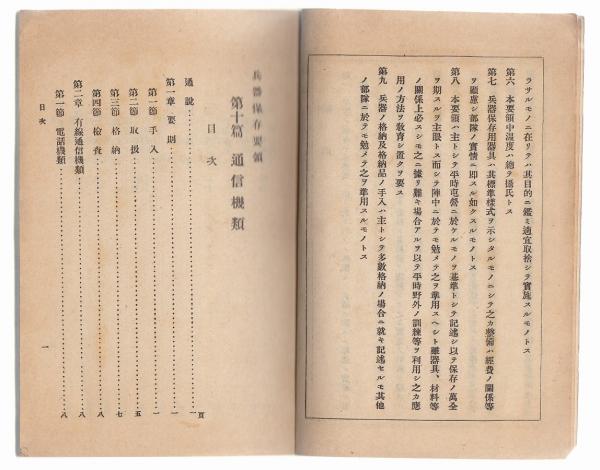 ラサルモノニ在リテハ其目的ニ鑑ミ適宜取捨シテ實施スルモノトス
第六　本要領中溫度ハ總テ攝氏トス
第七　兵器保存用器具ハ其標準樣式ヲ示シタルモノニシテ之カ整備ハ經費ノ關係等
ヲ顧慮シ部隊ノ實情ニ即スル如クスルモノトス
第八　本要領ハ主トシテ平時屯營ニ於ケルモノヲ基準トシテ記述シ以テ保存ノ萬全
ヲ期スルヲ主眼トス而シテ陣中ニ於テモ勉メテ之ヲ準用スヘシト雖器具、材料等
ノ關係上必スシモ之ニ據リ難キ場合アルヲ以テ平時野外ノ訓練等ヲ利用シ之カ應
用ノ方法ヲ敎育シ置クヲ要ス
第九　兵器ノ格納及格納品ノ手入ハ主トシテ多數格納ノ場合ニ就キ記述セルモ其他
ノ部隊ニ於テモ勉メテ之ヲ準用スルモノトス
兵器保存要領
第十篇　通信機類
目次
頁
通說……一
第一章　要則……一
第一節　手入……一
第二節　取扱……五
第三節　格納……七
第四節　檢査……八
第二章　有線通信機類……八
第一節　電話機類……八
目次
一